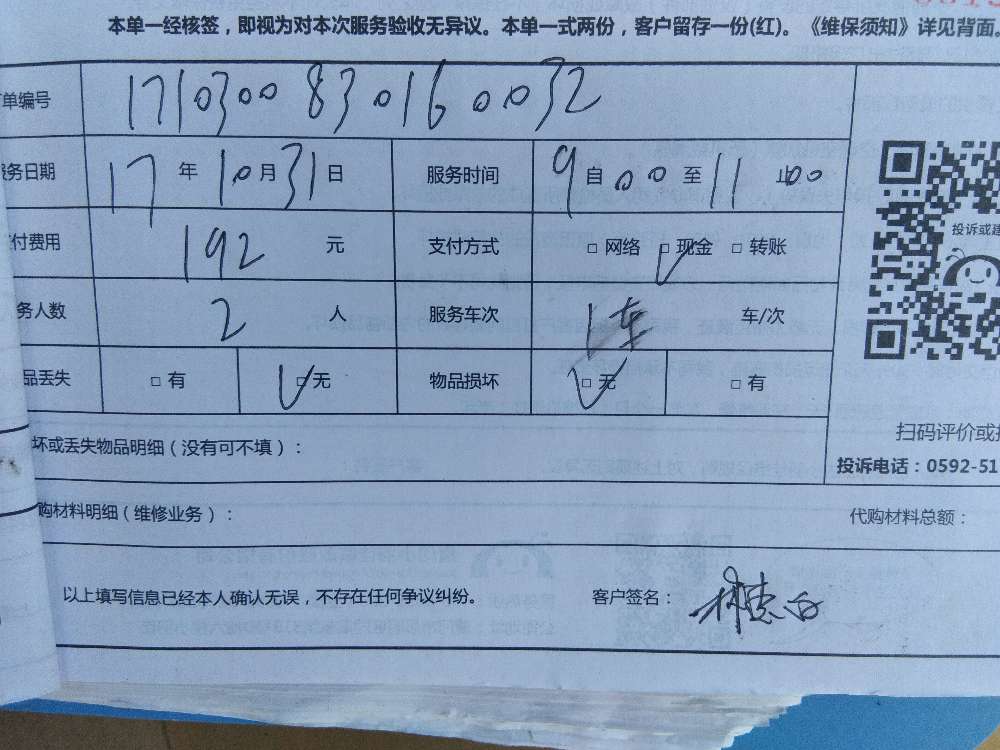 本单一经核签，即视为对本次服务验收无异议。本单一式两份，客户留存一份(红)。《维保须知》详见背面。
单编号 1710300830160032
务日期 17 年 10 月 31 日 服务时间 9 自 00 至 11 止 00
付费用 192 元 支付方式 □ 网络 □ 现金 □ 转账
务人数 2 人 服务车次 1车 车/次
品丢失 □ 有 □ 无 物品损坏 □ 无 □ 有
投诉或建
扫码评价或
坏或丢失物品明细（没有可不填）：
投诉电话：0592-51
购材料明细（维修业务）： 代购材料总额：
以上填写信息已经本人确认无误，不存在任何争议纠纷。 客户签名：